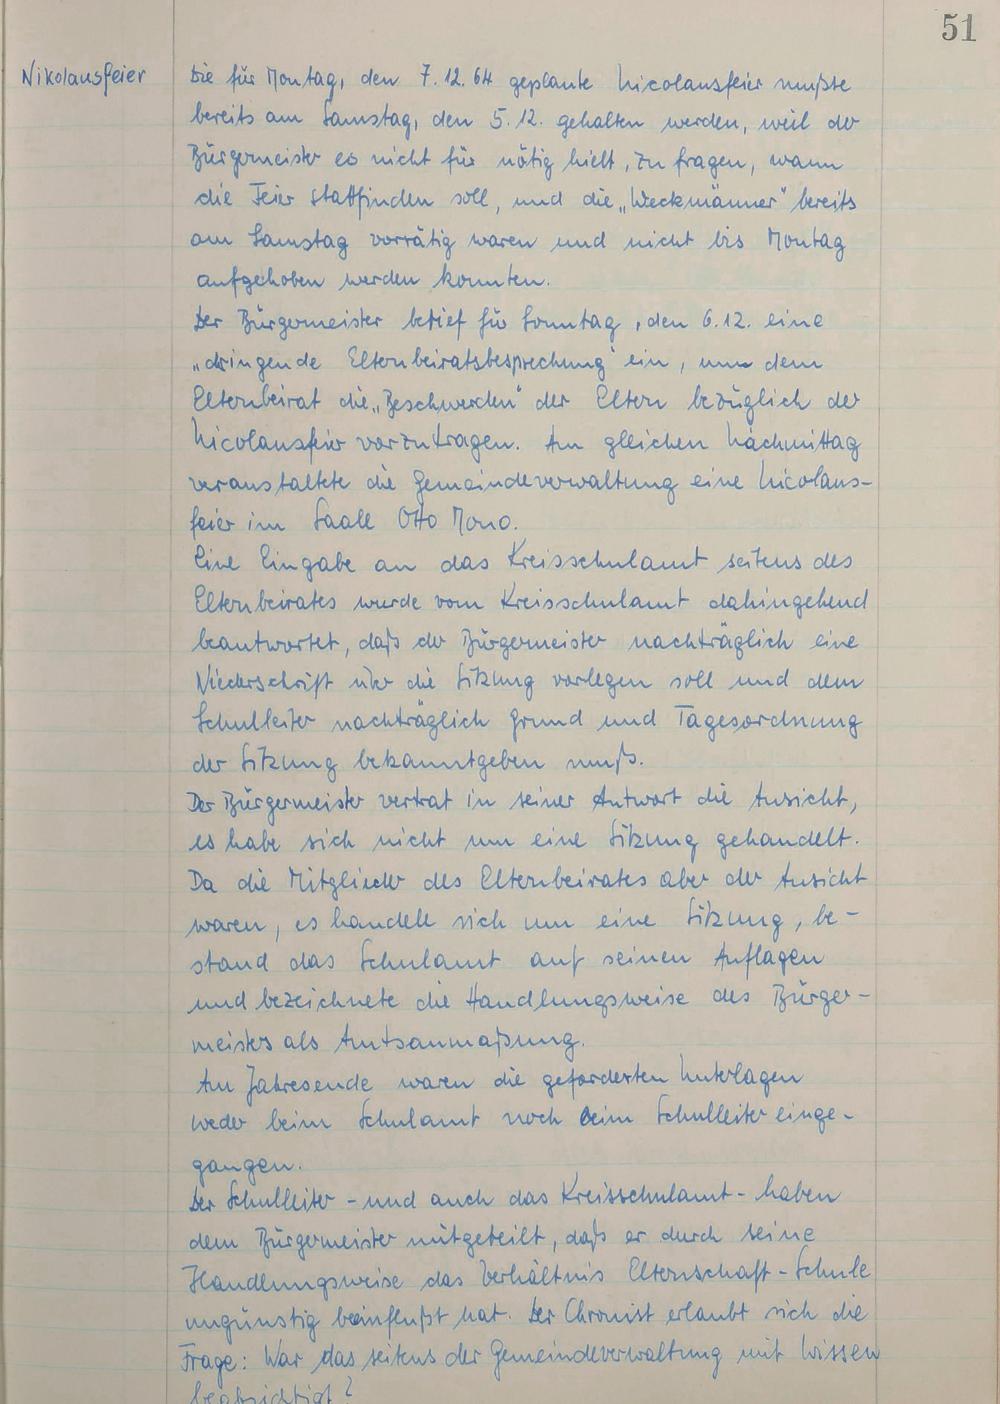 51
Nikolausfeier
Die für Montag, den 7.12.64 geplante Nicolausfeier mußte
bereits am Samstag, den 5.12. gehalten werden, weil der
Bürgermeister es nicht für nötig hielt, zu fragen, wann
die Feier stattfinden soll, und die „Weckmänner" bereits
am Samstag vorrätig waren und nicht bis Montag
aufgehoben werden konnten.
Der Bürgermeister berief für Sonntag, den 6.12. eine
„dringende Elternbeiratsbesprechung" ein, um dem
Elternbeirat die „Beschwerden" der Eltern bezüglich der
Nicolausfeier vorzutragen. Am gleichen Nachmittag
veranstaltete die Gemeindeverwaltung eine Nicolaus-
feier im Saale Otto
Eine Eingabe an das Kreisschulamt seitens des
Elternbeirates wurde vom Kreisschulamt dahingehend
beantwortet, daß der Bürgermeister nachträglich eine
Niederschrift über die Sitzung vorlegen soll und dem
Schulleiter nachträglich Grund und Tagesordnung
der Sitzung bekanntgeben muß.
Der Bürgermeister vertrat in seiner Antwort die Ansicht,
es habe sich nicht um eine Sitzung gehandelt.
Da die Mitglieder des Elternbeirates aber der Ansicht
waren, es handele sich um eine Sitzung, be-
stand das Schulamt auf seinen Auflagen
und bezeichnete die Handlungsweise des Bürger-
meisters als Amtsanmaßung.
Am Jahresende waren die geforderten Unterlagen
weder beim Schulamt noch beim Schulleiter einge-
gangen.
Der Schulleiter - und auch das Kreisschulamt - haben
dem Bürgermeister mitgeteilt, daß er durch seine
Handlungsweise das Verhältnis Elternschaft - Schule
ungünstig beeinflußt hat. Der Chronist erlaubt sich die
Frage: War das seitens der Gemeindeverwaltung mit Wissen
beabsichtigt?